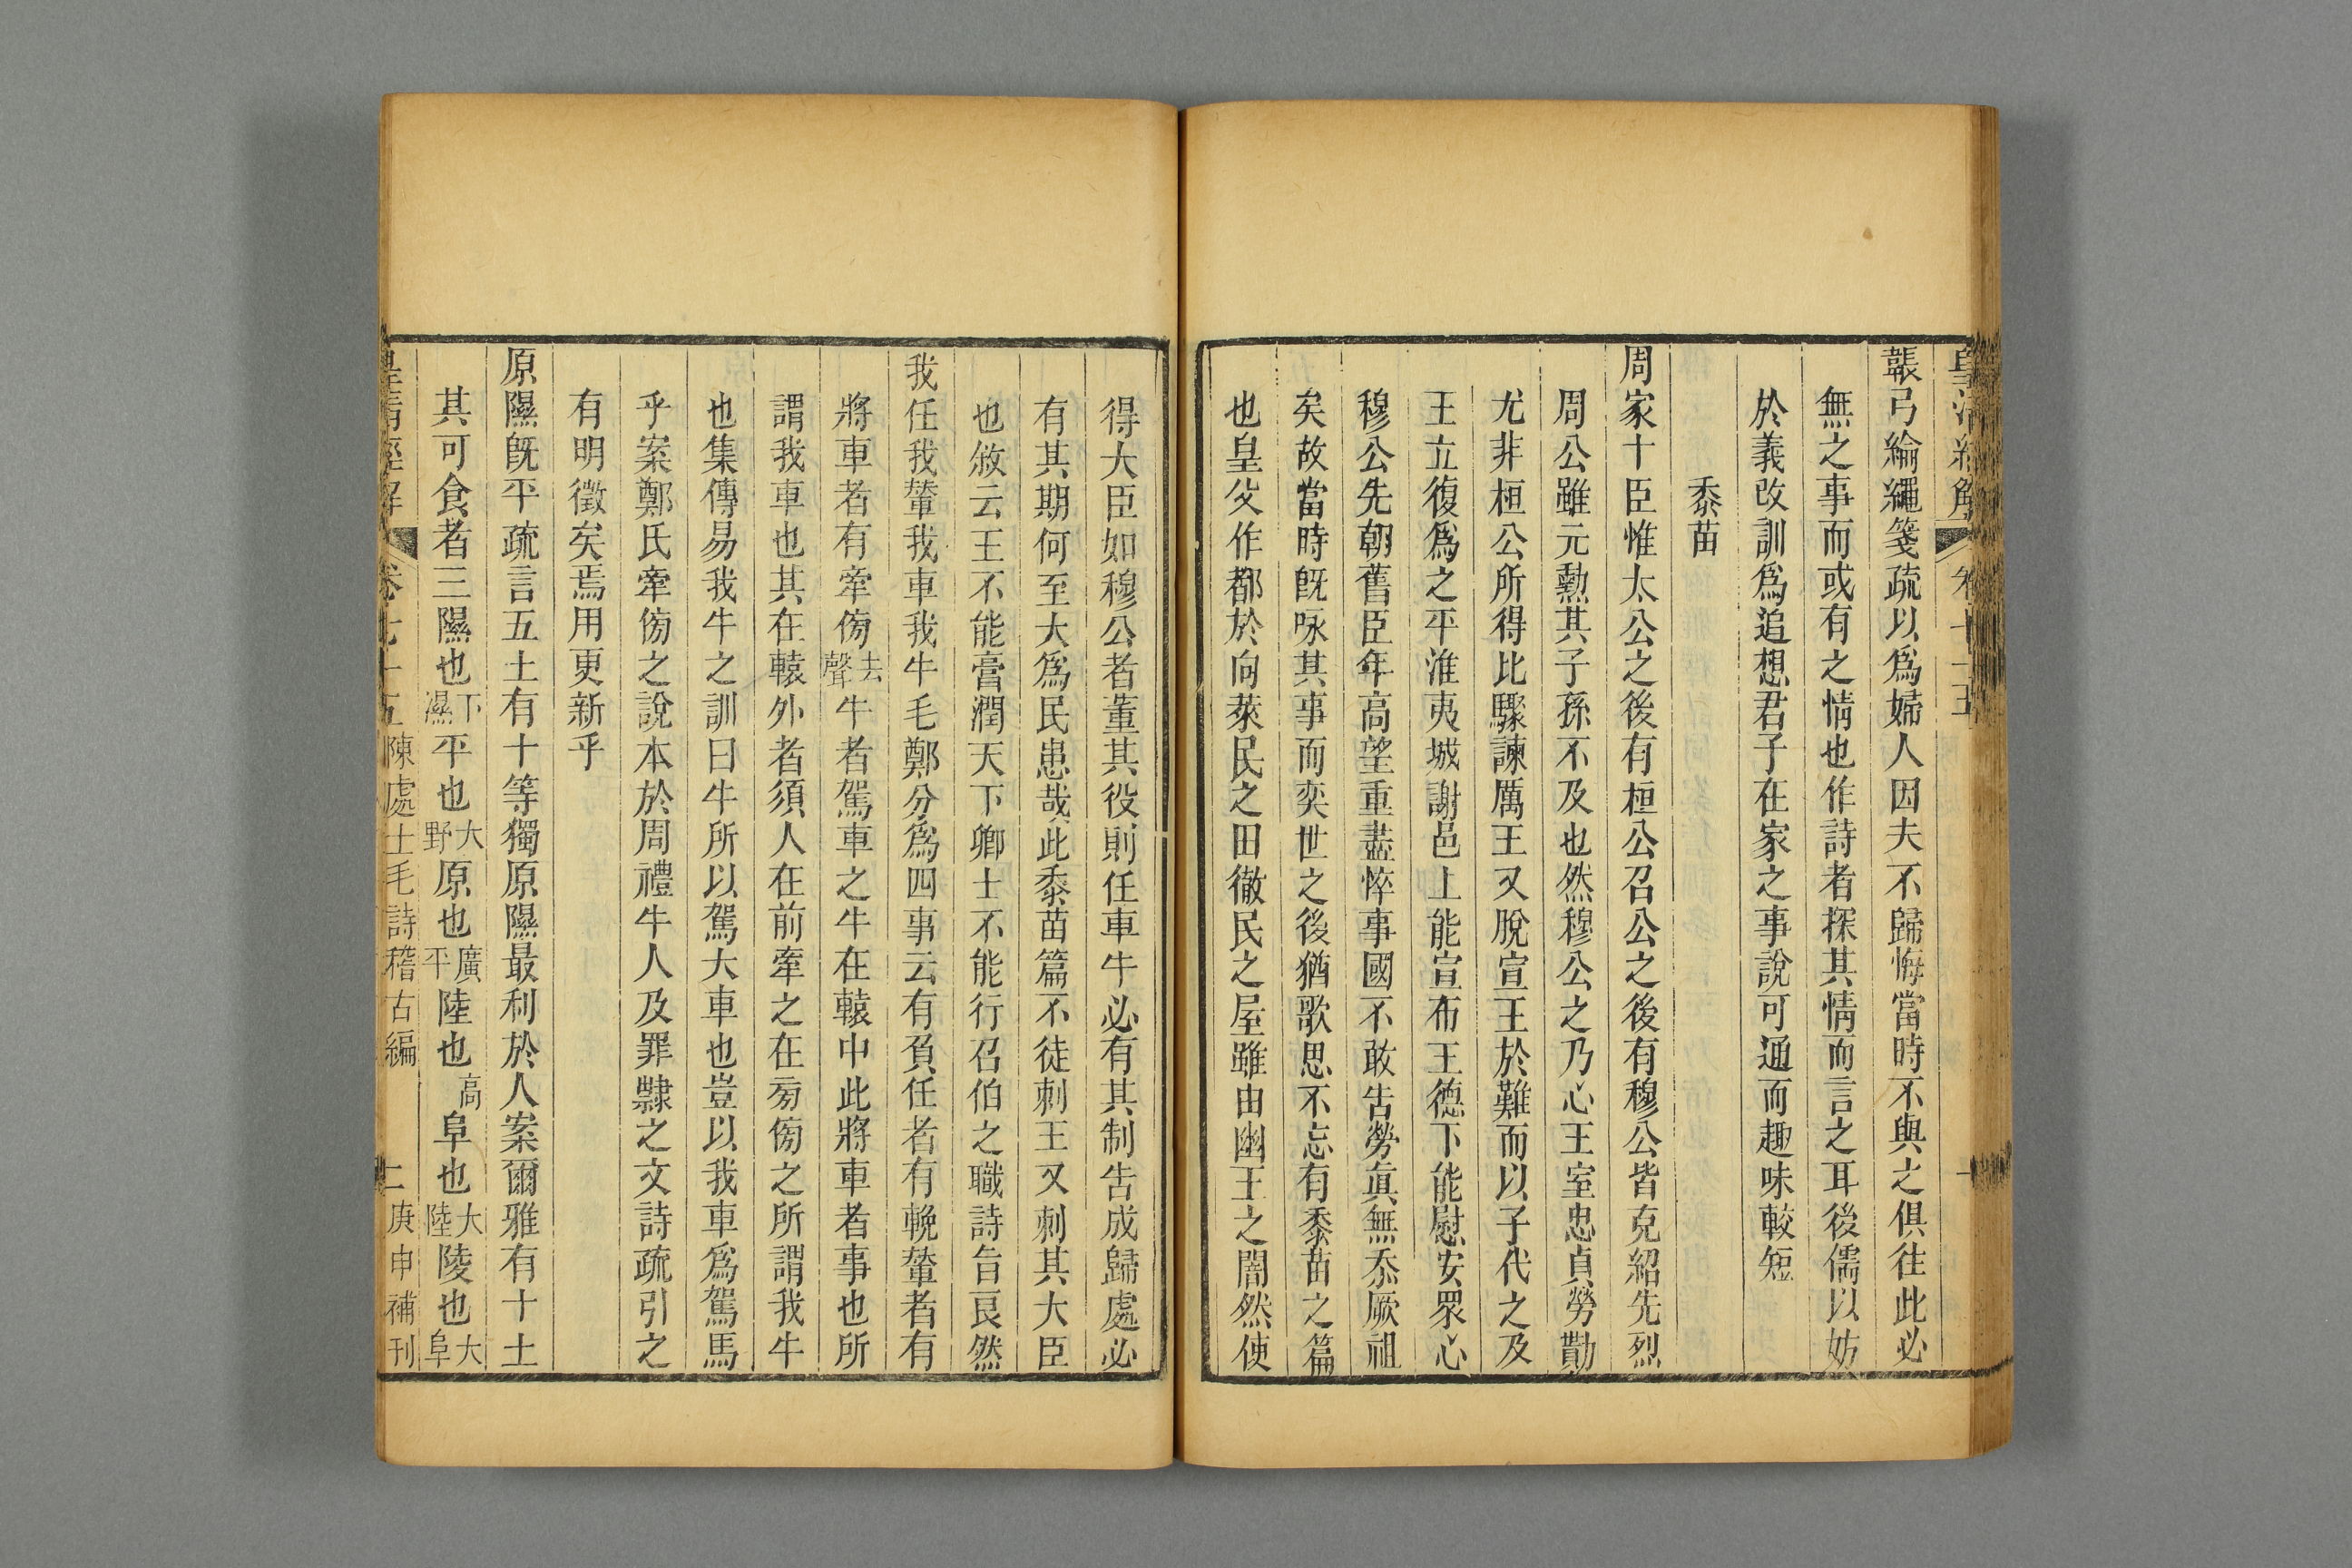 皇清經解 卷七十五
韔弓綸繩箋疏以爲婦人因夫不歸悔當時不與之俱往此必
無之事而或有之情也作詩者探其情而言之耳後儒以妨
於義改訓爲追想君子在家之事說可通而趣味較短
黍苗
周家十臣惟太公之後有桓公召公之後有穆公皆克紹先烈
周公雖元勳其子孫不及也然穆公之乃心王室忠貞勞勩
尤非桓公所得比驟諫厲王又脫宣王於難而以子代之及
王立復爲之平淮夷城謝邑上能宣布王德下能慰安眾心
穆公先朝舊臣年高望重盡悴事國不敢告勞眞無忝厥祖
矣故當時旣咏其事而奕世之後猶歌思不忘有黍苗之篇
也皇父作都於向萊民之田徹民之屋雖由幽王之闇然使
得大臣如穆公者董其役則任車牛必有其制告成歸處必
有其期何至大爲民患哉此黍苗篇不徒刺王又刺其大臣
也敘云王不能膏潤天下卿士不能行召伯之職詩旨良然
我任我輦我車我牛毛鄭分爲四事云有負任者有輓輦者有
將車者有牽傍去聲牛者駕車之牛在轅中此將車者事也所
謂我車也其在轅外者須人在前牽之在旁傍之所謂我牛
也集傳易我牛之訓曰牛所以駕大車也豈以我車爲駕馬
乎案鄭氏牽傍之說本於周禮牛人及罪隸之文詩疏引之
有明徵矣焉用更新乎
原隰旣平疏言五土有十等獨原隰最利於人案爾雅有十土
其可食者三隰也下濕平也大野原也廣平陸也高阜也大陸陵也大阜
皇清經解 卷七十五 陳處士毛詩稽古編 二 庚申補刊